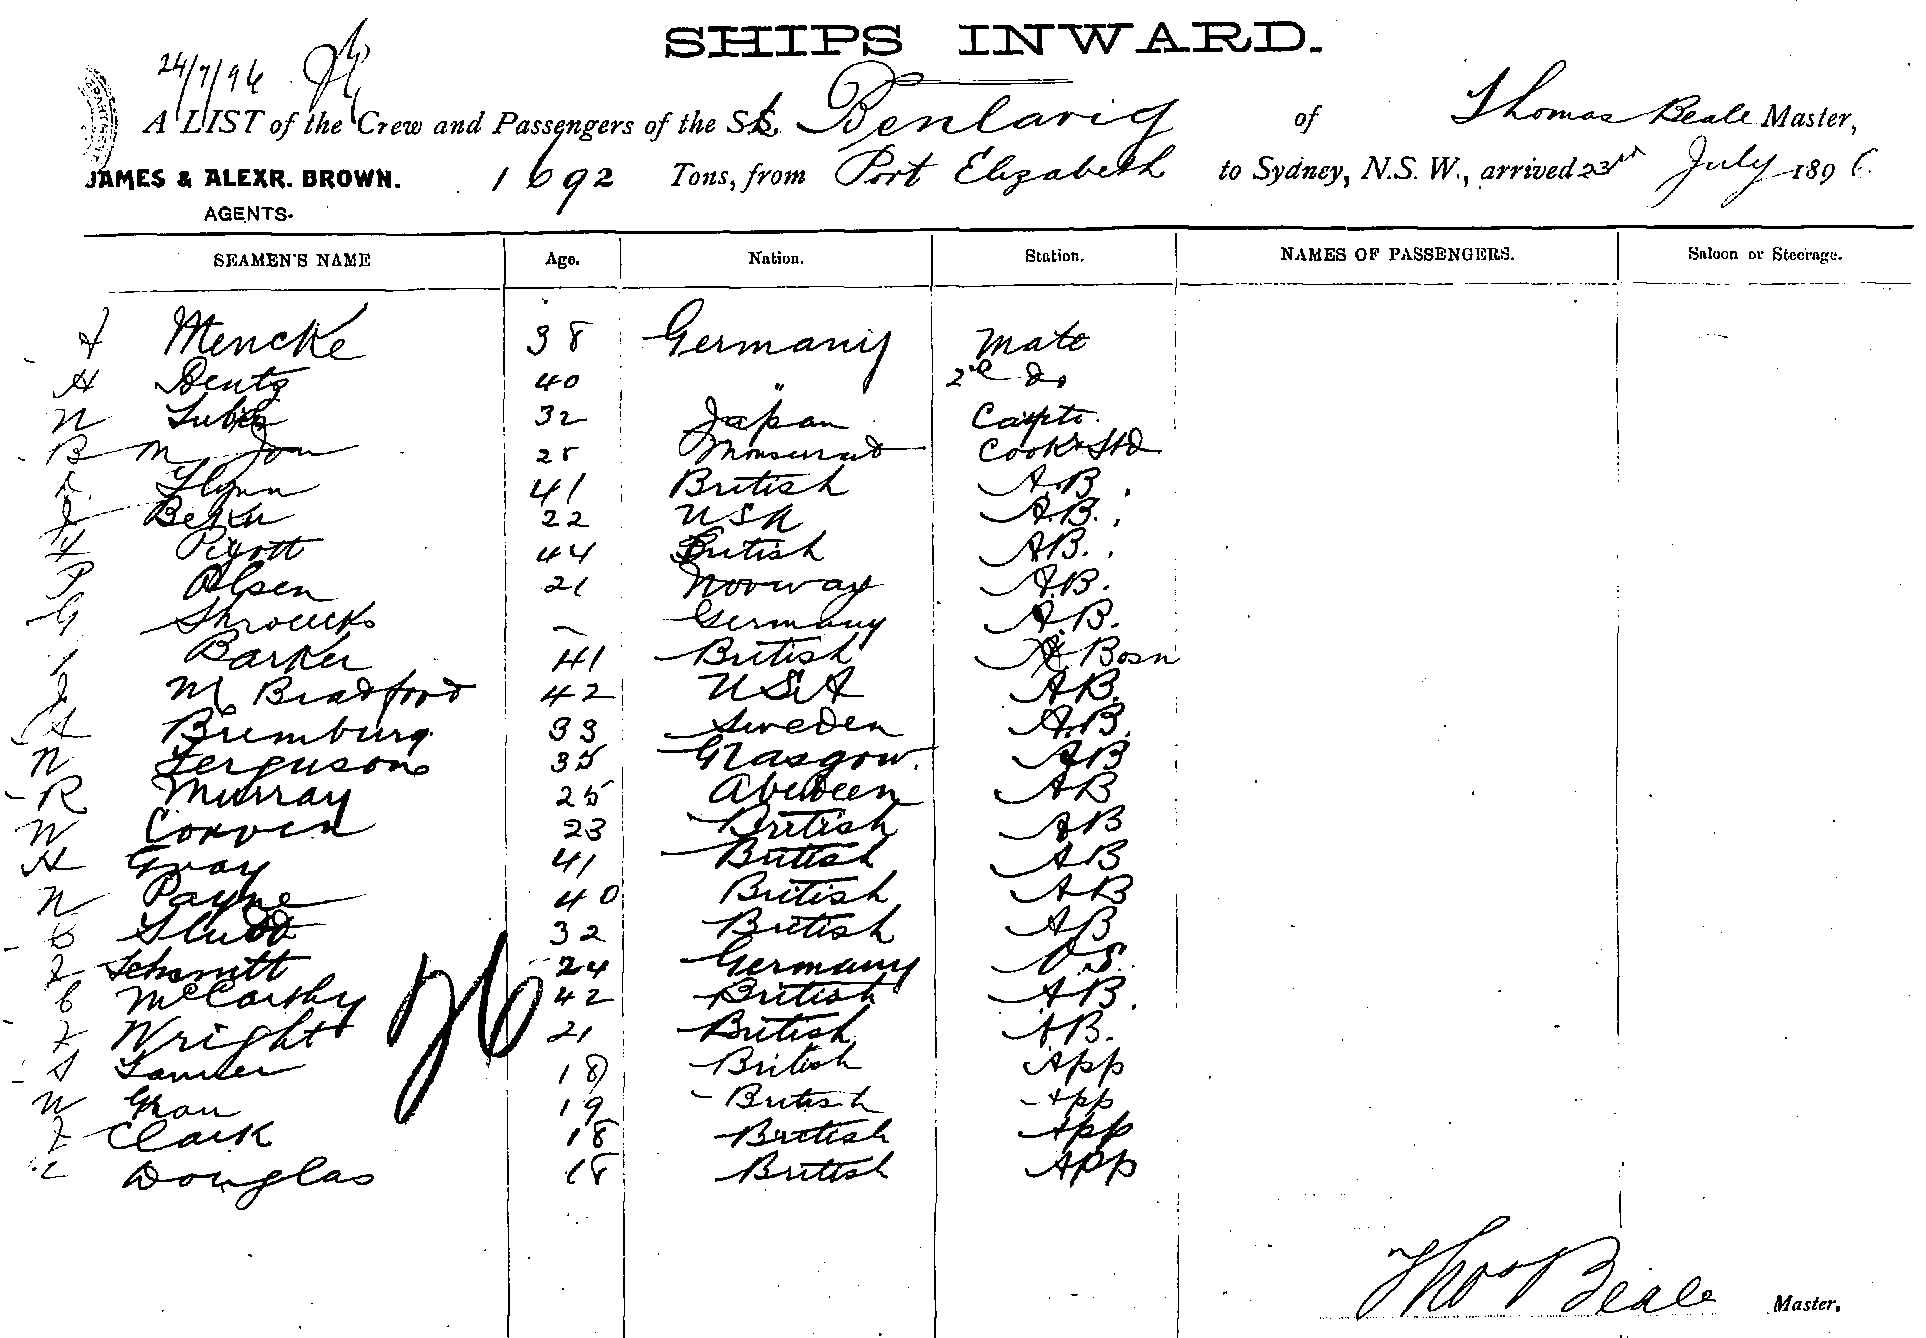 SHIPS INWARD.
24/7/96
A LIST of the Crew and Passengers of the S Benlarig of Thomas Beale Master,
JAMES & ALEXR. BROWN. 1692 Tons, from Port Elizabeth to Sydney, N.S.W., arrived 23rd July 1896
AGENTS.
SEAMEN'S NAME Age. Nation. Station. NAMES OF PASSENGERS. Saloon or Steerage.
Mencke 38 Germany Mate
H Dentz 40 " 2nd Do
N 32 Japan Carptr.
B M Jon 25 Monserrat Cook & Std
Flynn 41 British A.B.
J Beker 22 USA A.B.
Pigott 44 British AB.
P Olsen 21 Norway A.B.
G 〃 Germany A.B.
Barker 41 British Bosn
J Mc Bradford 42 USA AB.
A Bremburg 33 Sweden A.B.
N Ferguson 35 Glasgow. AB
R Murray 25 Aberdeen AB
W Corven 23 British AB
H Gray 41 British AB
N Payne 40 British AB
C Studd 32 British AB
Schmitt 24 Germany O.S.
C McCarthy 42 British AB.
F Wright 21 British AB.
S 18 British App
W 19 British App
F Clark 18 British App
L Douglas 18 British App
26
Thos Beale Master.